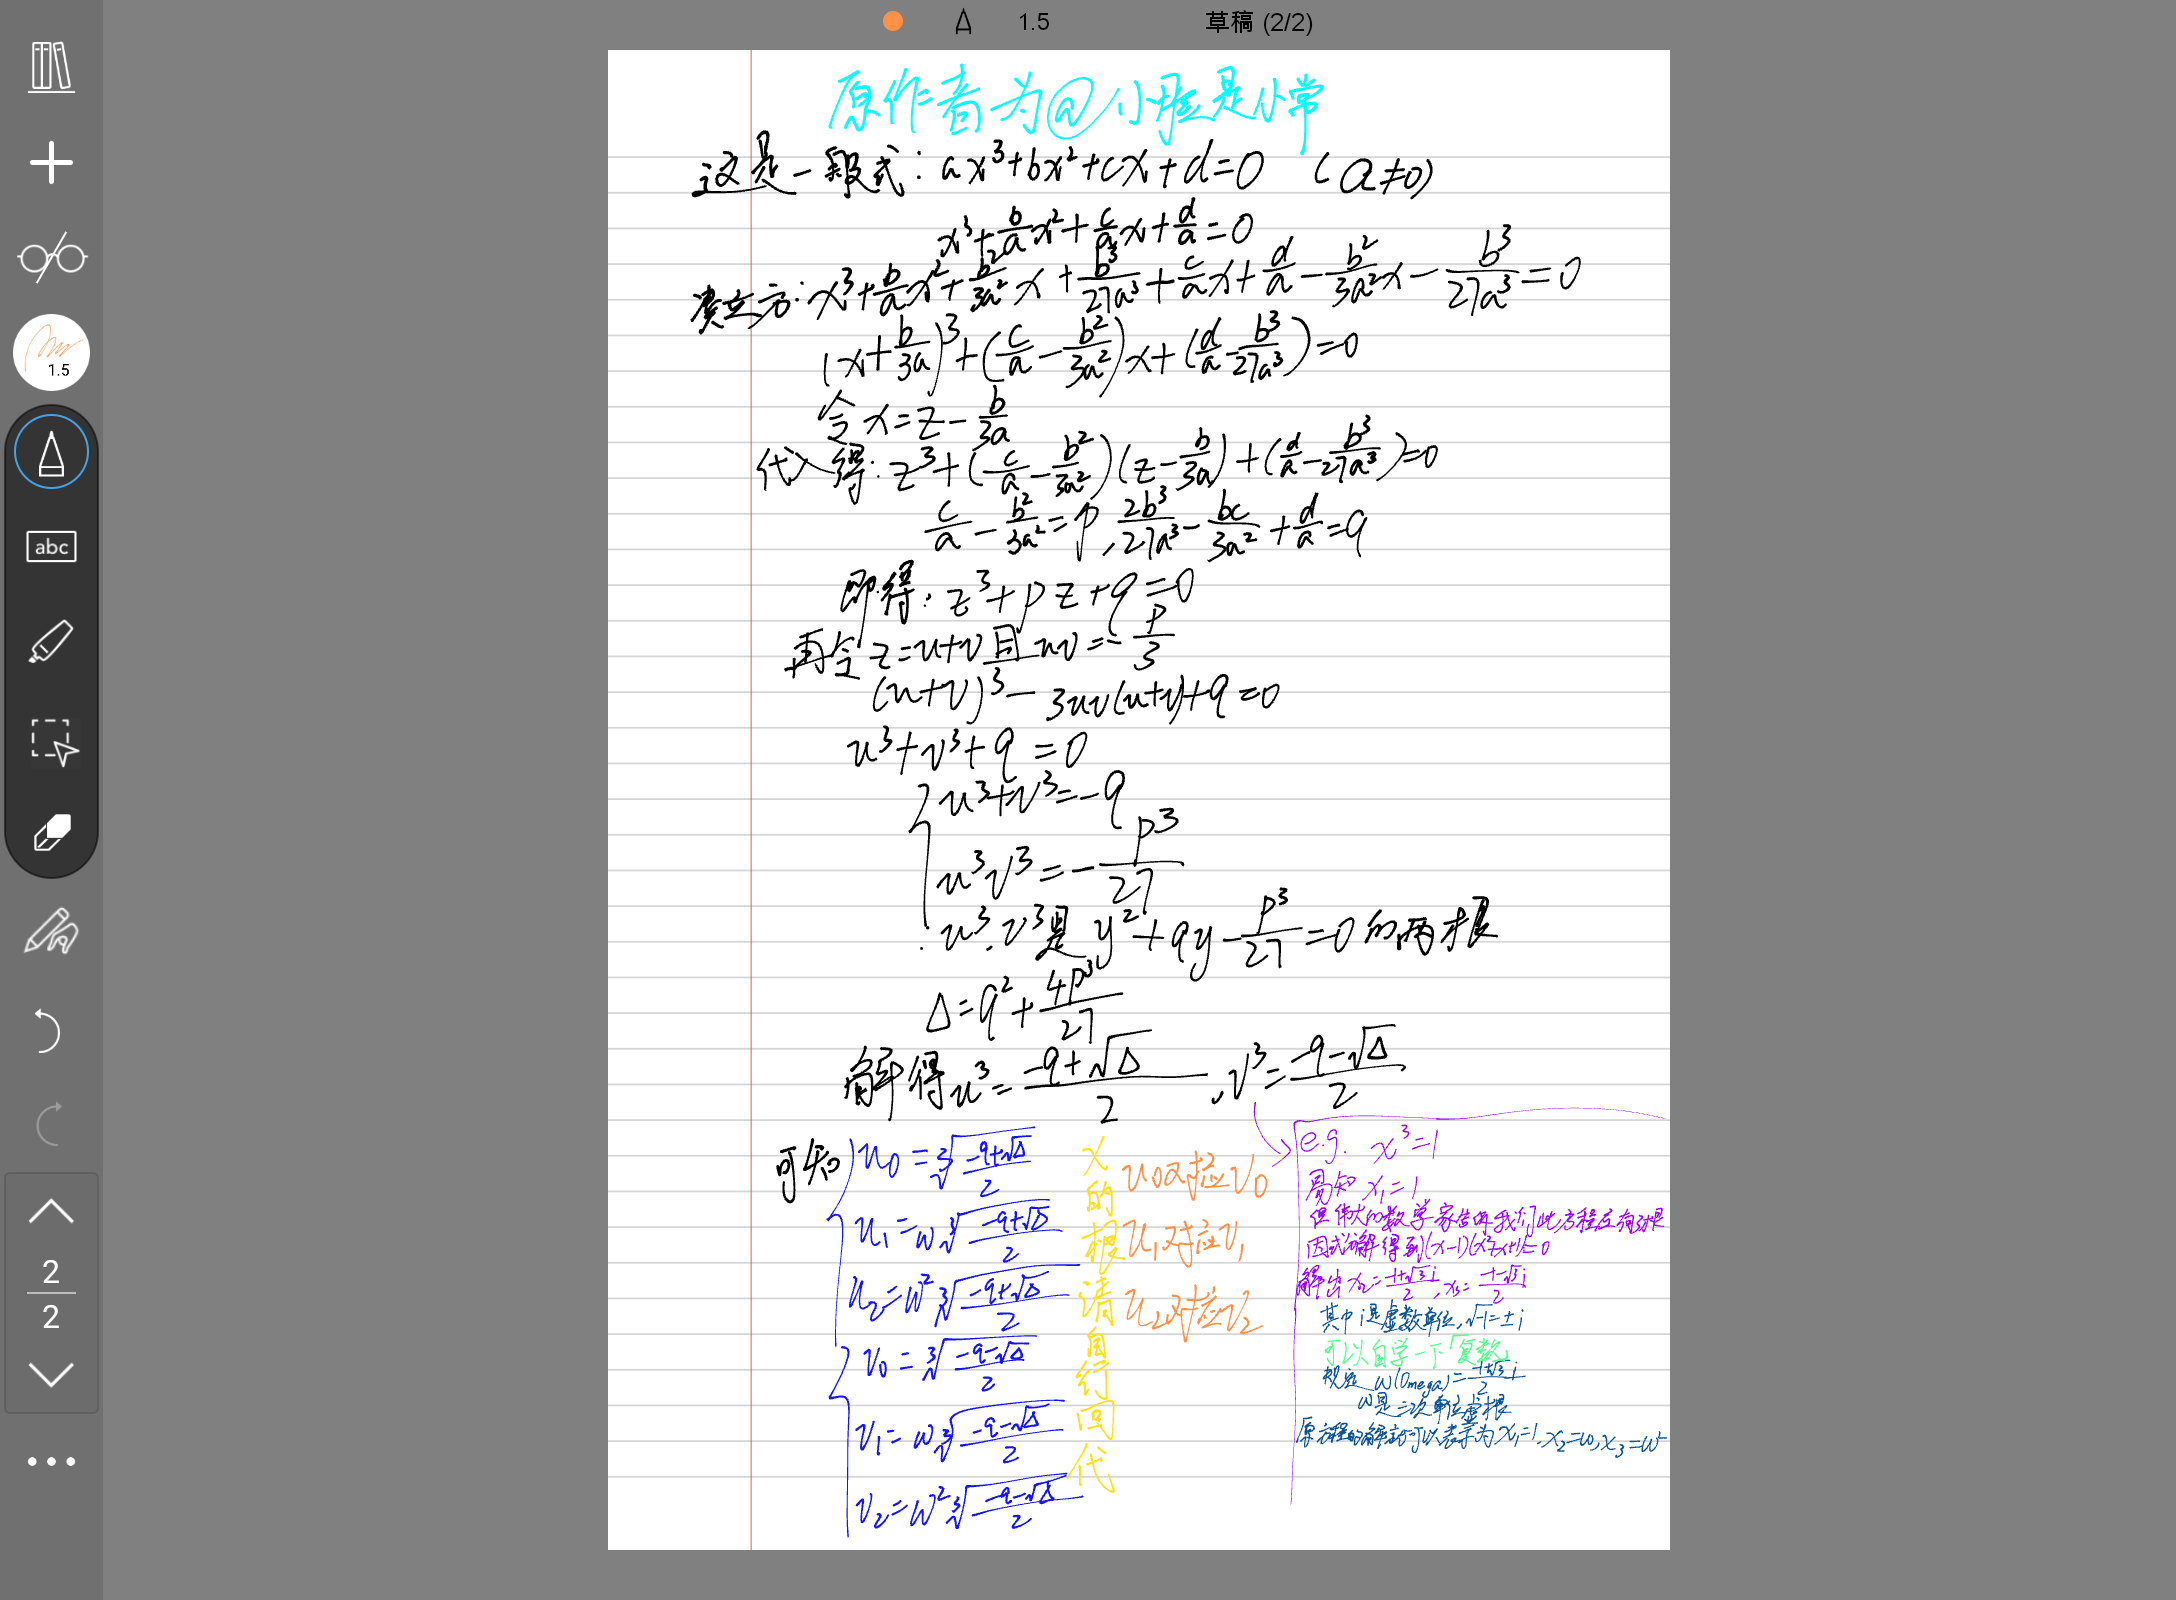 1.5 草稿 (2/2)
1.5
abc
2
2
原作者为@小脸是小常
这是一般式: ax³+bx²+cx+d=0 (a≠0)
x³+b/a x²+c/a x+d/a=0
凑立方: x³+b/a x²+b²/3a² x+b³/27a³+c/a x+d/a-b²/3a² x-b³/27a³=0
(x+b/3a)³+(c/a-b²/3a²)x+(d/a-b³/27a³)=0
令x=z-b/3a
代入得: z³+(c/a-b²/3a²)(z-b/3a)+(d/a-b³/27a³)=0
c/a-b²/3a²=p, 2b³/27a³-bc/3a²+d/a=q
即得: z³+pz+q=0
再令z=u+v且uv=-p/3
(u+v)³-3uv(u+v)+q=0
u³+v³+q=0
u³+v³=-q
u³v³=-p³/27
∴u³.v³是y²+qy-p³/27=0的两根
Δ=q²+4p³/27
解得u³=(-q+√Δ)/2, v³=(-q-√Δ)/2
可知
u₀=³√((-q+√Δ)/2)
u₁=ω³√((-q+√Δ)/2)
u₂=ω²³√((-q+√Δ)/2)
v₀=³√((-q-√Δ)/2)
v₁=ω³√((-q-√Δ)/2)
v₂=ω²³√((-q-√Δ)/2)
x的根请自行回代
u₀对应v₀
u₁对应v₁
u₂对应v₂
e.g. x³=1
易知x₁=1
但伟大的数学家告诉我们此方程应有3根
因式分解得到(x-1)(x²+x+1)=0
解出x₂=(-1+√3i)/2, x₃=(-1-√3i)/2
其中i是虚数单位,√-1=±i
可以自学一下「复数」
规定ω(Omega)=(-1+√3i)/2
ω是三次单位虚根
原方程的解亦可以表示为x₁=1,x₂=ω,x₃=ω²